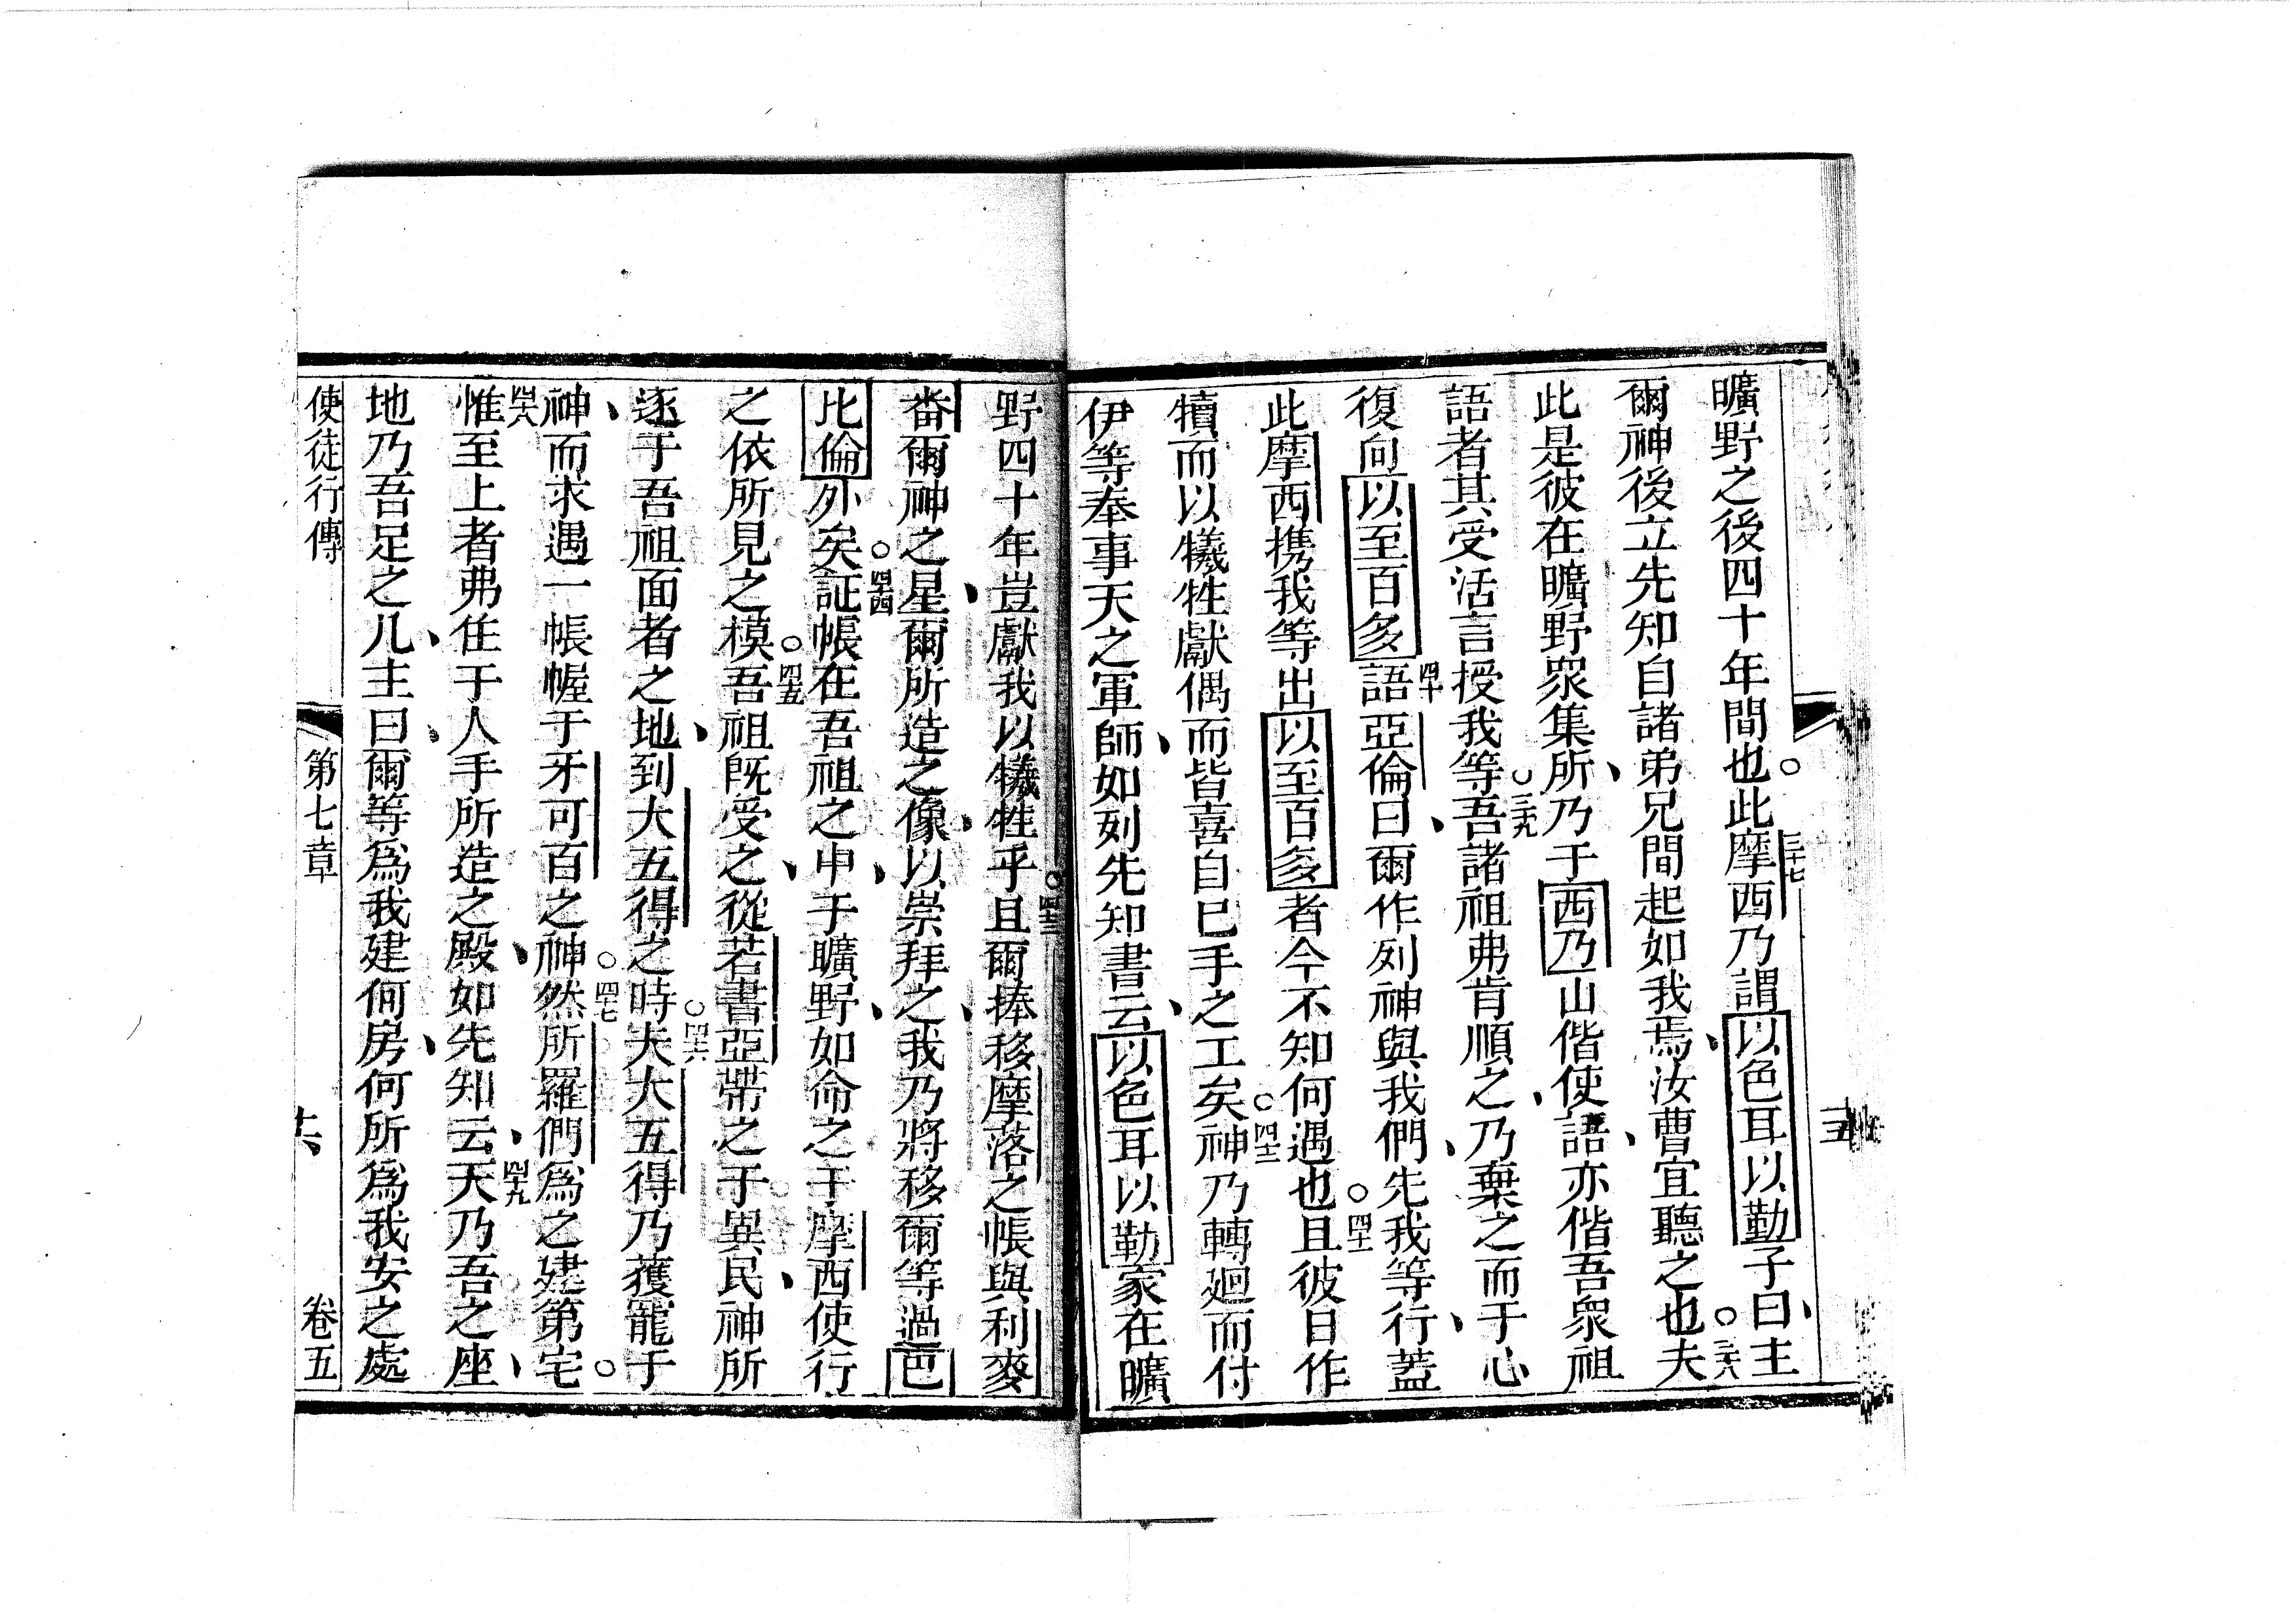 曠野之後四十年間也。三十七此摩西乃謂以色耳以勒子曰、主
爾神後立先知自諸弟兄間起如我焉、汝曹宜聽之也。三十八夫
此是彼在曠野眾集所、乃于西乃山偕使語、亦偕吾眾祖
語者其受活言授我等。三十九吾諸祖弗肯順之、乃棄之而于心
復向以至百多四十語亞倫曰、爾作列神與我們、先我等行、蓋
此摩西携我等出以至百多者今不知何遇也。四十一且彼日作
犢而以犧牲獻偶而皆喜自己手之工矣。四十二神乃轉廻而付
伊等奉事天之軍師、如列先知書云、以色耳以勒家在曠
野四十年豈獻我以犧牲乎。四十三且爾捧移摩落之帳與利麥
番爾神之星、爾所造之像、以崇拜之、我乃將移爾等過巴
比倫外矣。四十四証帳在吾祖之中、于曠野、如命之于摩西使行
之依所見之模。四十五吾祖旣受之、從若書亞帶之于異民、神所
逐于吾祖面者之地、到大五得之時。四十六夫大五得乃獲寵于
神、而求遇一帳幄于牙可百之神。四十七然所羅們為之建第宅。
四十八惟至上者弗住于人手所造之殿、如先知云、四十九天乃吾之座、
地乃吾足之几、主曰、爾等為我建何房、何所為我安之處
使徒行傳 第七章 十六 卷五